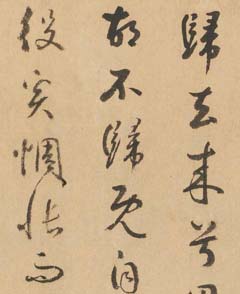 歸去来兮田
胡不歸既自
役奚惆悵而